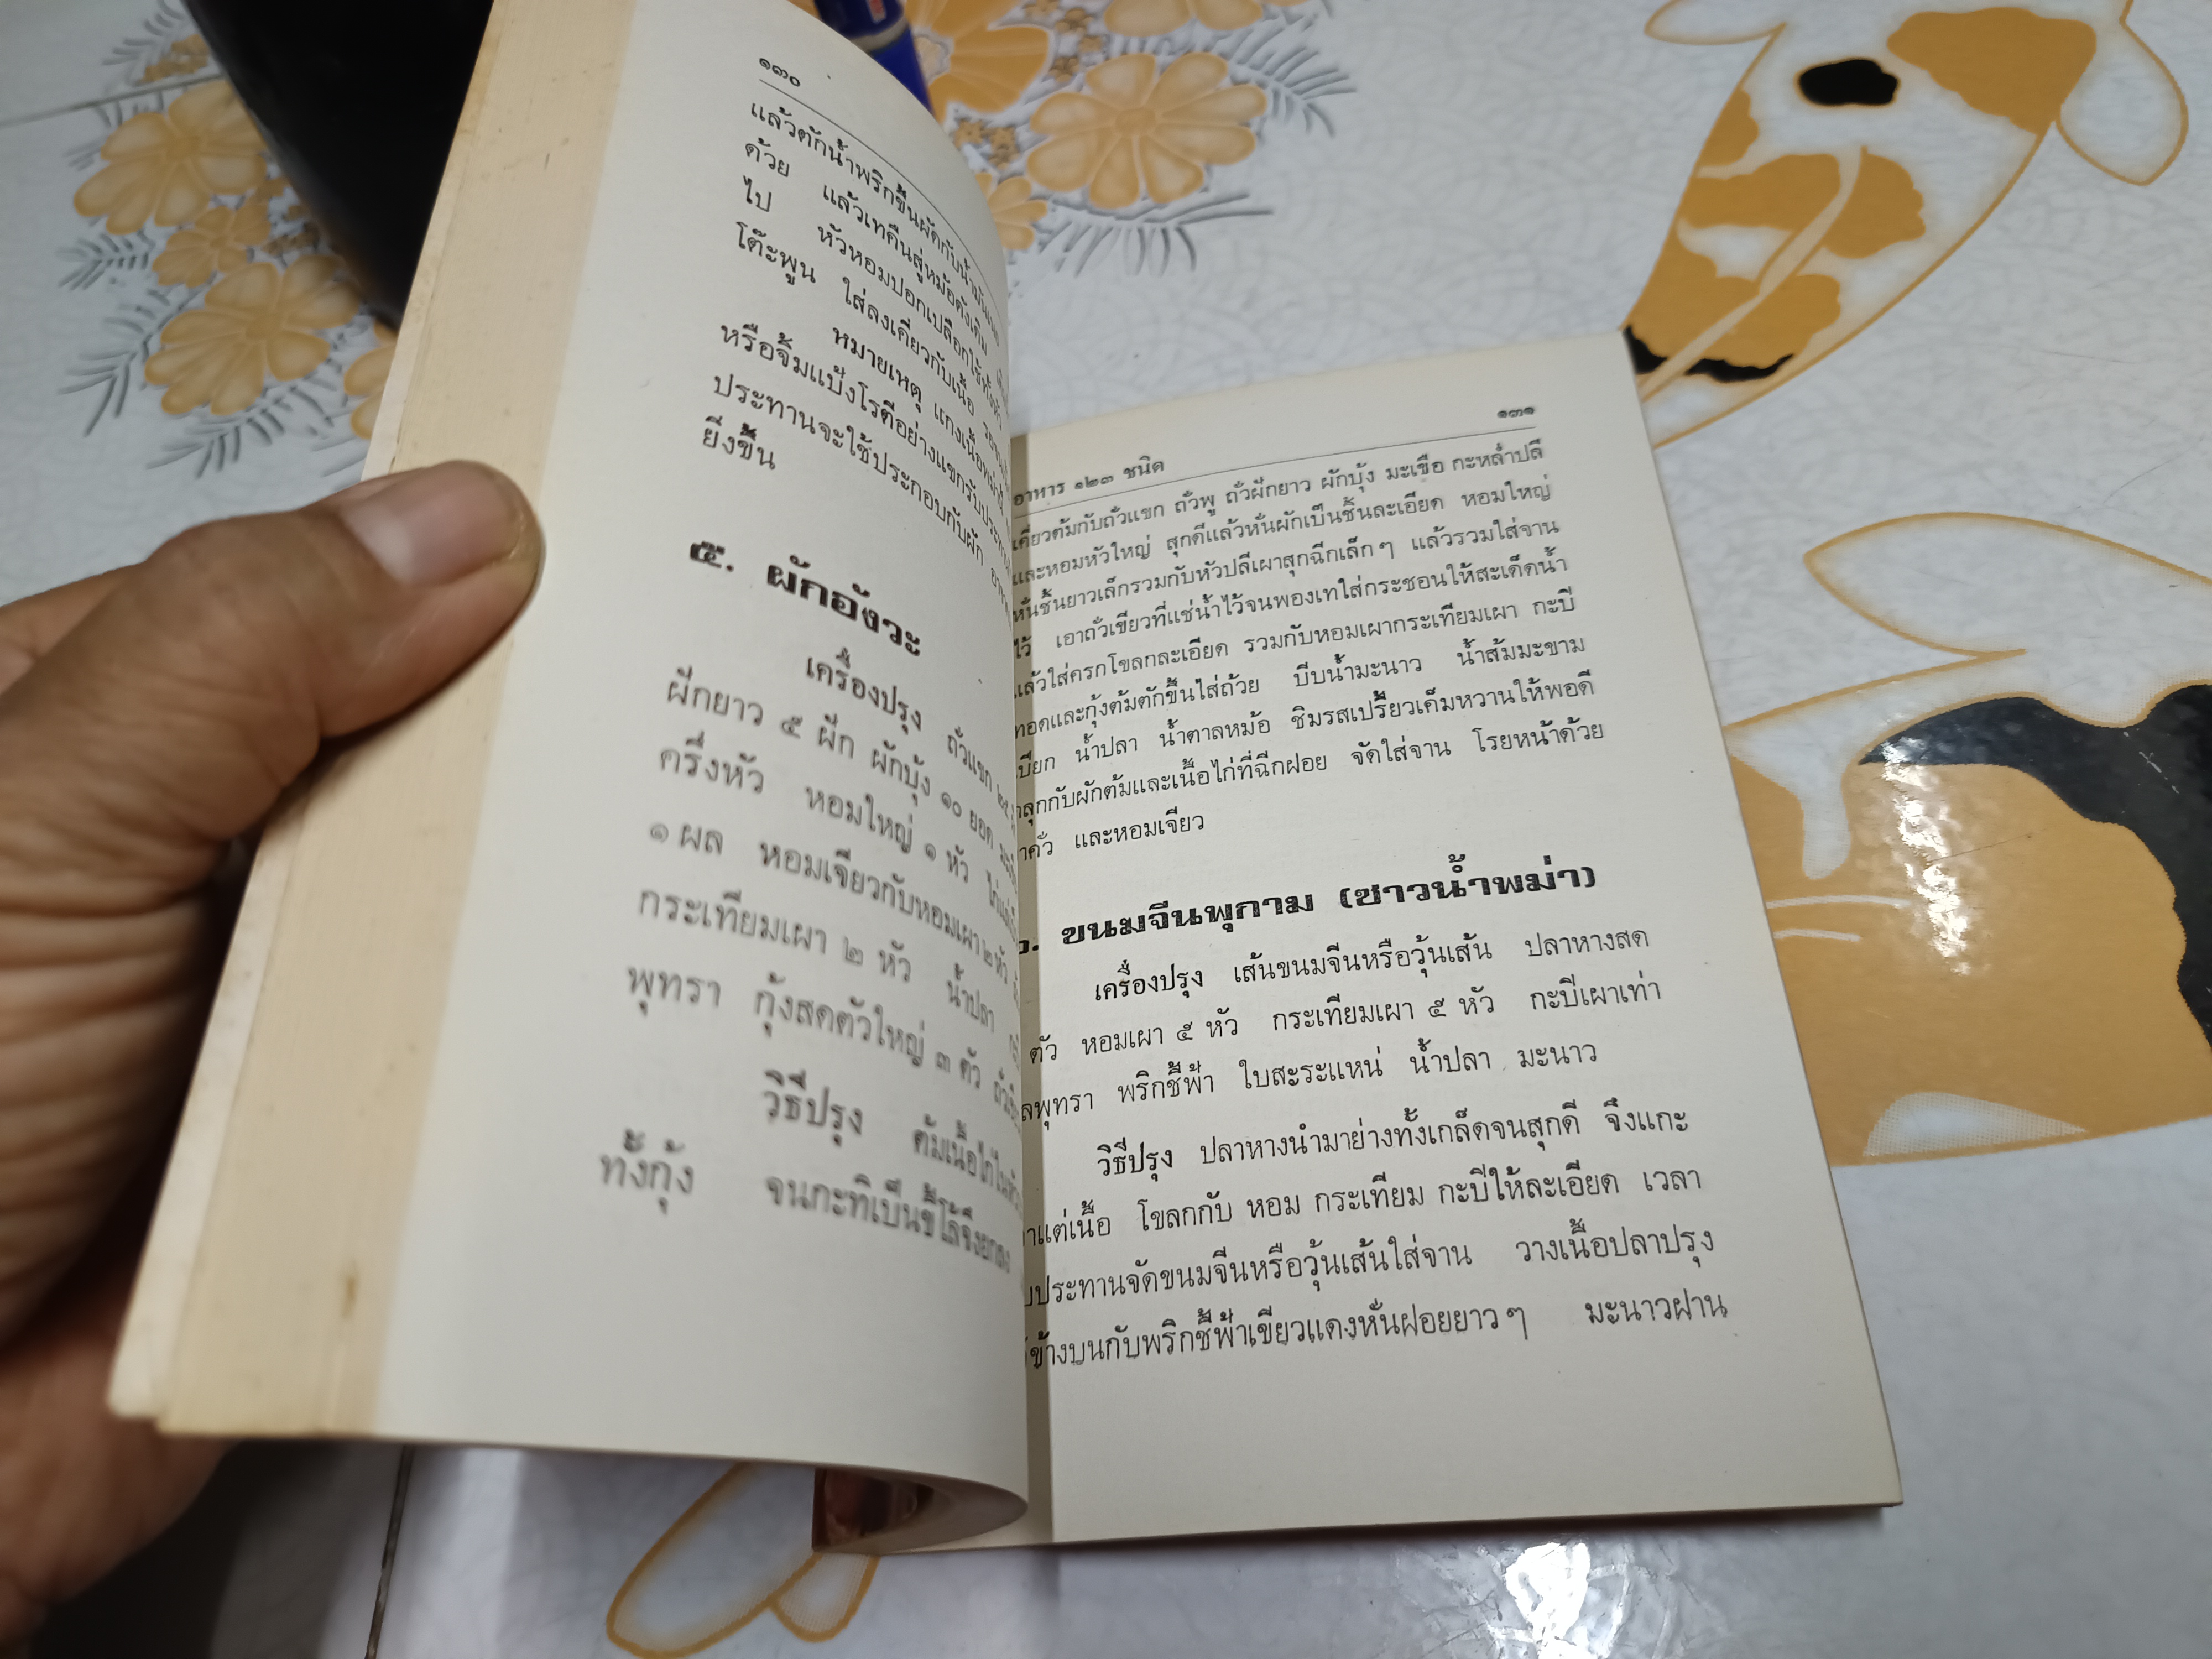 ๑๓๐
แล้วตักน้ำพริกขึ้นผัดกับน้ำมันเนย
ด้วย แล้วเทคืนสู่หม้อดังเดิม
ไป หัวหอมปอกเปลือกใช้ทั้งหัว
โต๊ะพูน ใส่ลงเคี่ยวกับเนื้อ
หมายเหตุ แกงเนื้อพม่านี้
หรือจิ้มแป้งโรตีอย่างแขกรับประทาน
ประทานจะใช้ประกอบกับผัก
ยิ่งขึ้น
๕. ผักอังวะ
เครื่องปรุง ถั่วแขก ๒๕
ผักยาว ๕ ฝัก ผักบุ้ง ๑๐ ยอด
ครึ่งหัว หอมใหญ่ ๑ หัว
๑ ผล หอมเจียวกับหอมเผา ๒ หัว
กระเทียมเผา ๒ หัว น้ำปลา
พุทรา กุ้งสดตัวใหญ่ ๓ ตัว
วิธีปรุง ต้มเนื้อไก่
ทั้งกุ้ง จนกะทิเป็นขี้โล้จึงยกลง
อาหาร ๑๒๓ ชนิด ๑๓๑
เคี่ยวต้มกับถั่วแขก ถั่วพู ถั่วฝักยาว ผักบุ้ง มะเขือ กะหล่ำปลี
และหอมหัวใหญ่ สุกดีแล้วหั่นผักเป็นชิ้นละเอียด หอมใหญ่
หั่นชิ้นยาวเล็กรวมกับหัวปลีเผาสุกฉีกเล็กๆ แล้วรวมใส่จาน
ไว้ เอาถั่วเขียวที่แช่น้ำไว้จนพองเทใส่กระชอนให้สะเด็ดน้ำ
แล้วใส่ครกโขลกละเอียด รวมกับหอมเผากระเทียมเผา กะปิ
ทอดและกุ้งต้มตักขึ้นใส่ถ้วย บีบน้ำมะนาว น้ำส้มมะขาม
เปียก น้ำปลา น้ำตาลหม้อ ชิมรสเปรี้ยวเค็มหวานให้พอดี
คลุกกับผักต้มและเนื้อไก่ที่ฉีกฝอย จัดใส่จาน โรยหน้าด้วย
คั่ว และหอมเจียว
ขนมจีนพุกาม (ซาวน้ำพม่า)
เครื่องปรุง เส้นขนมจีนหรือวุ้นเส้น ปลาหางสด
ตัว หอมเผา ๕ หัว กระเทียมเผา ๕ หัว กะปิเผาเท่า
พุทรา พริกชี้ฟ้า ใบสะระแหน่ น้ำปลา มะนาว
วิธีปรุง ปลาหางนำมาย่างทั้งเกล็ดจนสุกดี จึงแกะ
แต่เนื้อ โขลกกับ หอม กระเทียม กะปิให้ละเอียด เวลา
ประทานจัดขนมจีนหรือวุ้นเส้นใส่จาน วางเนื้อปลาปรุง
ข้างบนกับพริกชี้ฟ้าเขียวแดงหั่นฝอยยาวๆ มะนาวฝาน